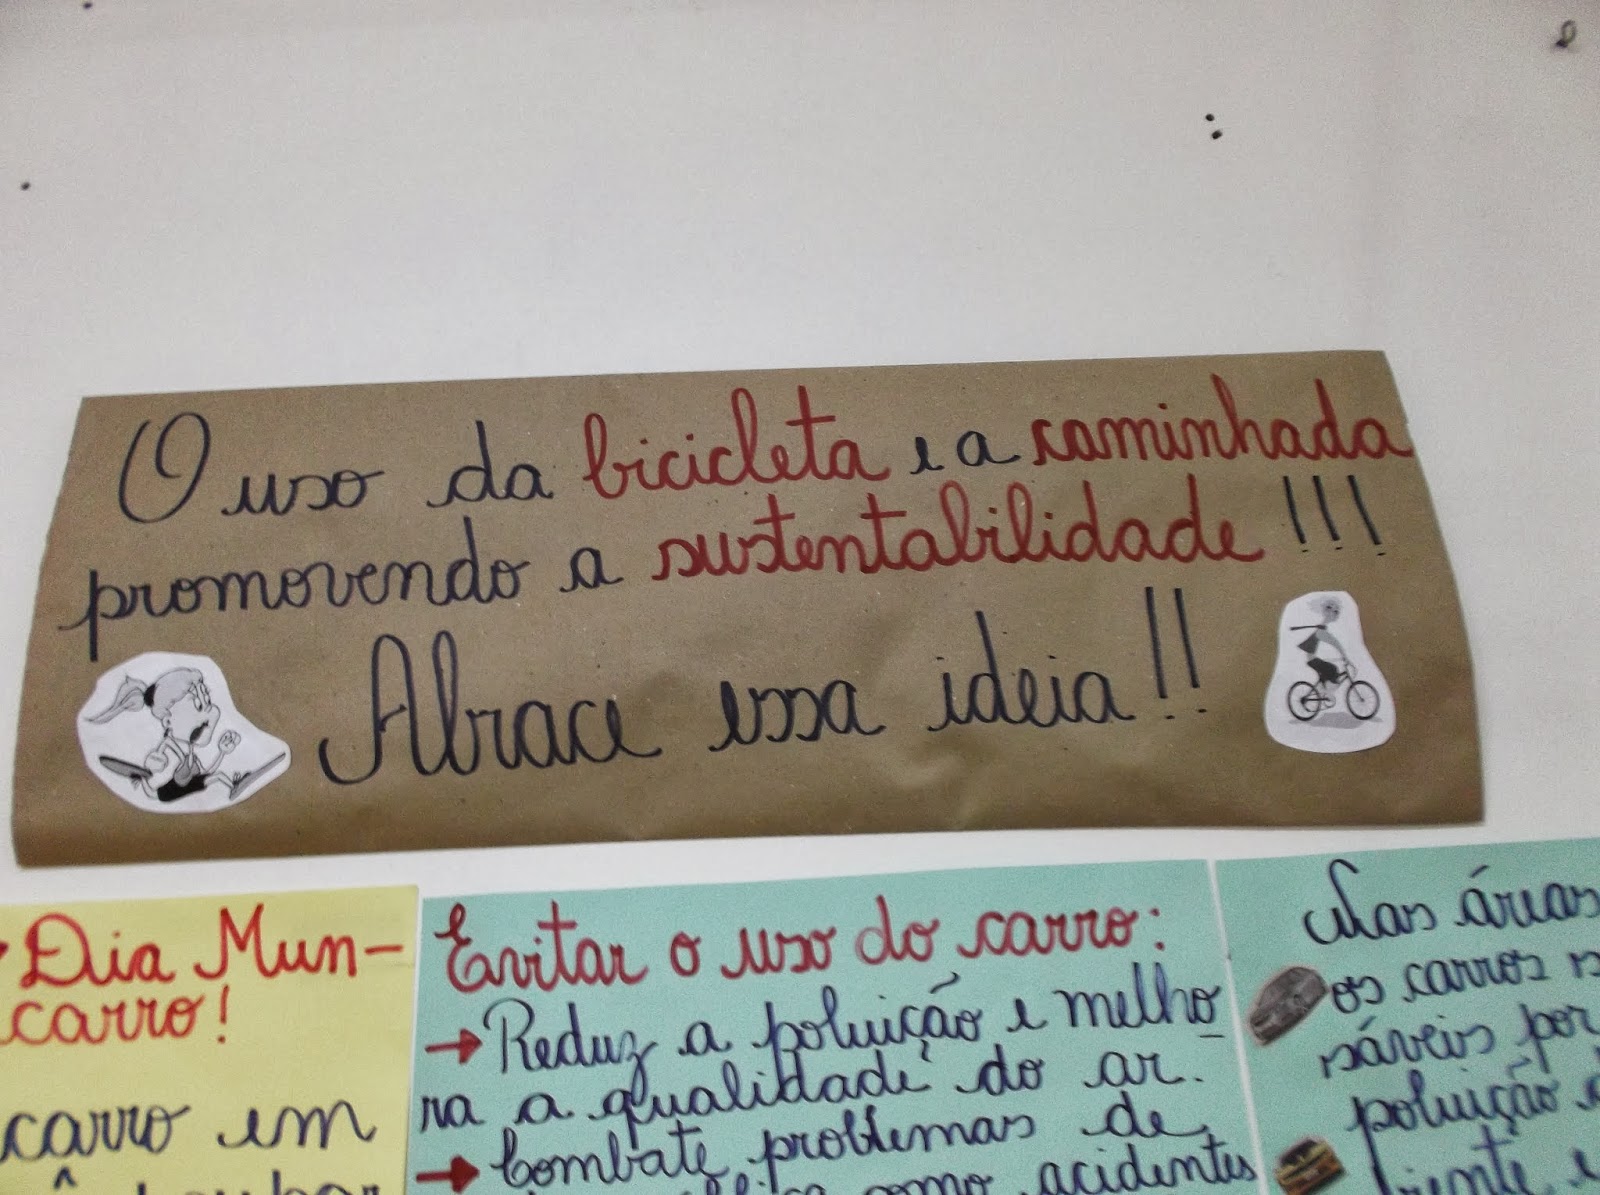 O uso da bicicleta e a caminhada
promovendo a sustentabilidade!!!
Abrace essa ideia!!
Dia Mun-
carro!
carro em
Evitar o uso do carro:
→ Reduz a poluição e melho
ra a qualidade do ar.
→ Combate problemas de
como acidentes
Nas áreas
os carros
sáveis por
poluição